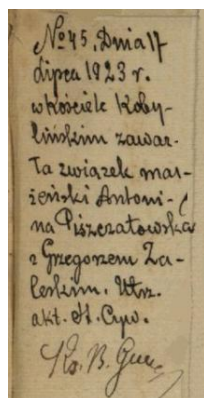 № 45. Dnia 17
lipca 1923 r.
w kościele Koby-
lińskim zawar-
ła związek mał-
żeński Antoni-
na Piszczatowska
z Grzegorzem Za-
leskim. Utrz.
akt. St. Cyw.
Ks. B.